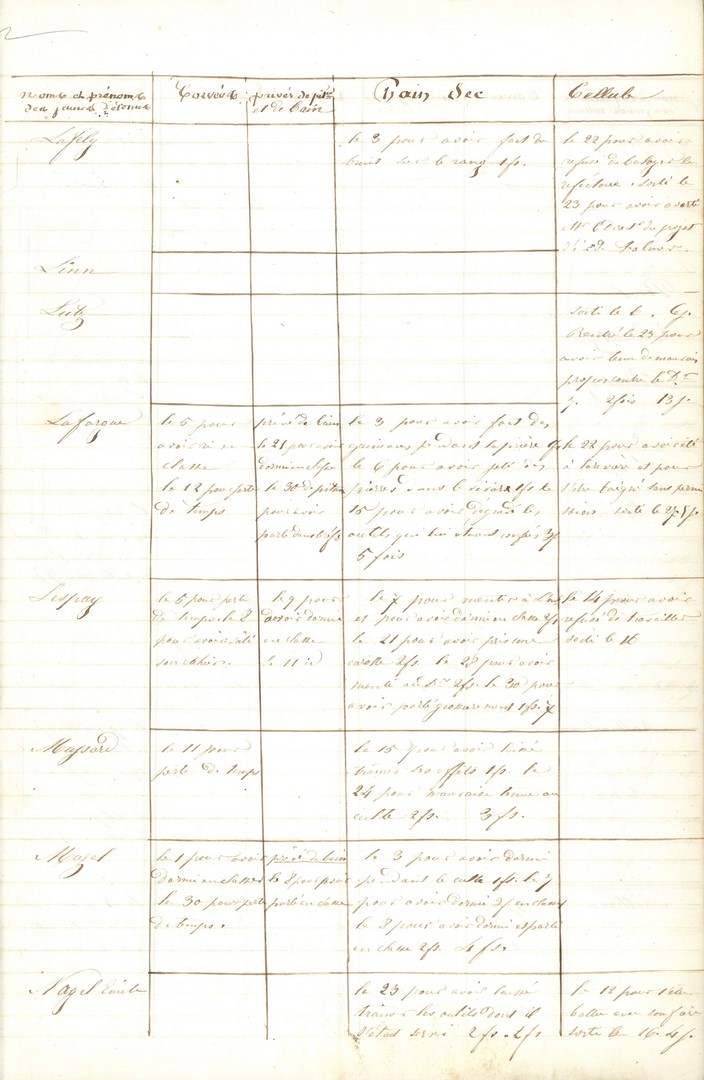 noms et prénoms des jeunes détenus
Corvées
privés de pitce et de bain
Pain sec
Cellule
Lafely
le 3 pour avoir fait du
bruit sur le rang 1fs.
le 22 pour avoir
refusé de balayer le
refectoire. sorti le
23 pour avoir averti
Mr du projet
Linn
Lutz
sorti le 6. 6j.
Rentré le 23 pour
avoir tenu de mauvais
propos contre le Dr
7j. 2fois 13j.
Lafargue
le 5 pour
avoir ri en
classe
le 12 pour perte
de temps
privé de bain
le 21 pour avoir
dormi en classe
le 30 de pitce
pour avoir
parlé
le 3 pour avoir fait des
grimaces pendant la prière
le 6 pour avoir jeté des
pierres dans le 1fs le
15 pour avoir dégradé les
outils qui lui étaient confiés
5 fois
le 22 pour avoir été
à la rivière et pour
s'être baigné sans permi
ssion. sorti le 27. 5j.
Lespay
le 5 pour perte
de temps. le 8
pour avoir sali
son cahier.
le 9 pour
avoir dormi
en classe
le 11 id
le 7 pour mentir à
et pour avoir dormi en classe 2fs
le 21 pour avoir pris une
carotte 2fs. le 28 pour avoir
menti au Dr 2fs. le 30 pour
avoir parlé grossierement 1fs. 7
le 14 pour avoir
refusé de travailler
sorti le 16
Massard
le 11 pour
perte de temps
le 15 pour avoir laissé
trainer ses effets 1fs. le
24 pour mauvaise tenue au
culte 2fs. 3fs.
Mazel
le 1 pour avoir
dormi en classe
le 30 pour perte
de temps.
privé de bain
le 8 pour avoir
parlé en classe
le 3 pour avoir dormi
pendant le culte 1fs. le 7
pour avoir dormi en classe
le 8 pour avoir dormi et parlé
en classe 2fs. 4fs.
Nagel Emile
le 23 pour avoir laissé
trainer les outils dont il
s'était servi 2fs. 2fs
le 12 pour s'être
battu avec son frère
sorti le 16. 4j.